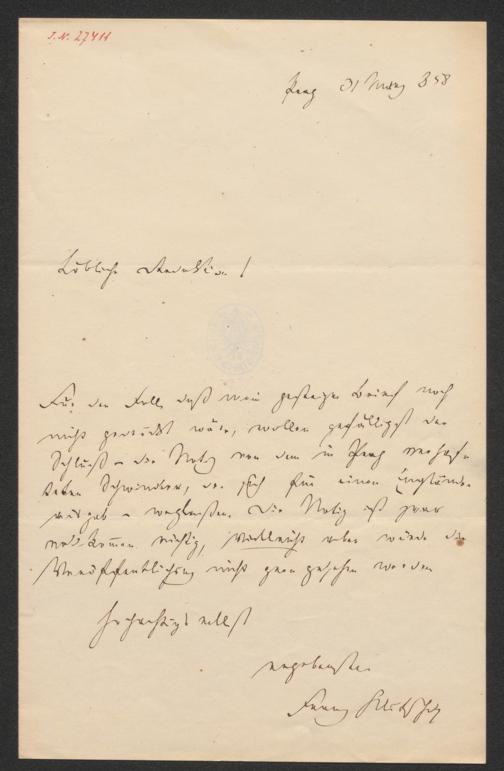 J.N. 27411
Prag 31 März 858
Löbliche Redaktion!
Für den Fall, daß mein gestriger Brief noch
nicht gedruckt wäre, wollen gefälligst den
Schluß – die Notiz von dem in Prag verhaf-
teten Schwindler, der sich für einen Engländer
ausgab – weglassen. Die Notiz ist zwar
vollkommen richtig, vielleicht aber würde die
Veröffentlichung nicht gern gesehen werden
Hochachtungsvollst
ergebenster
Franz